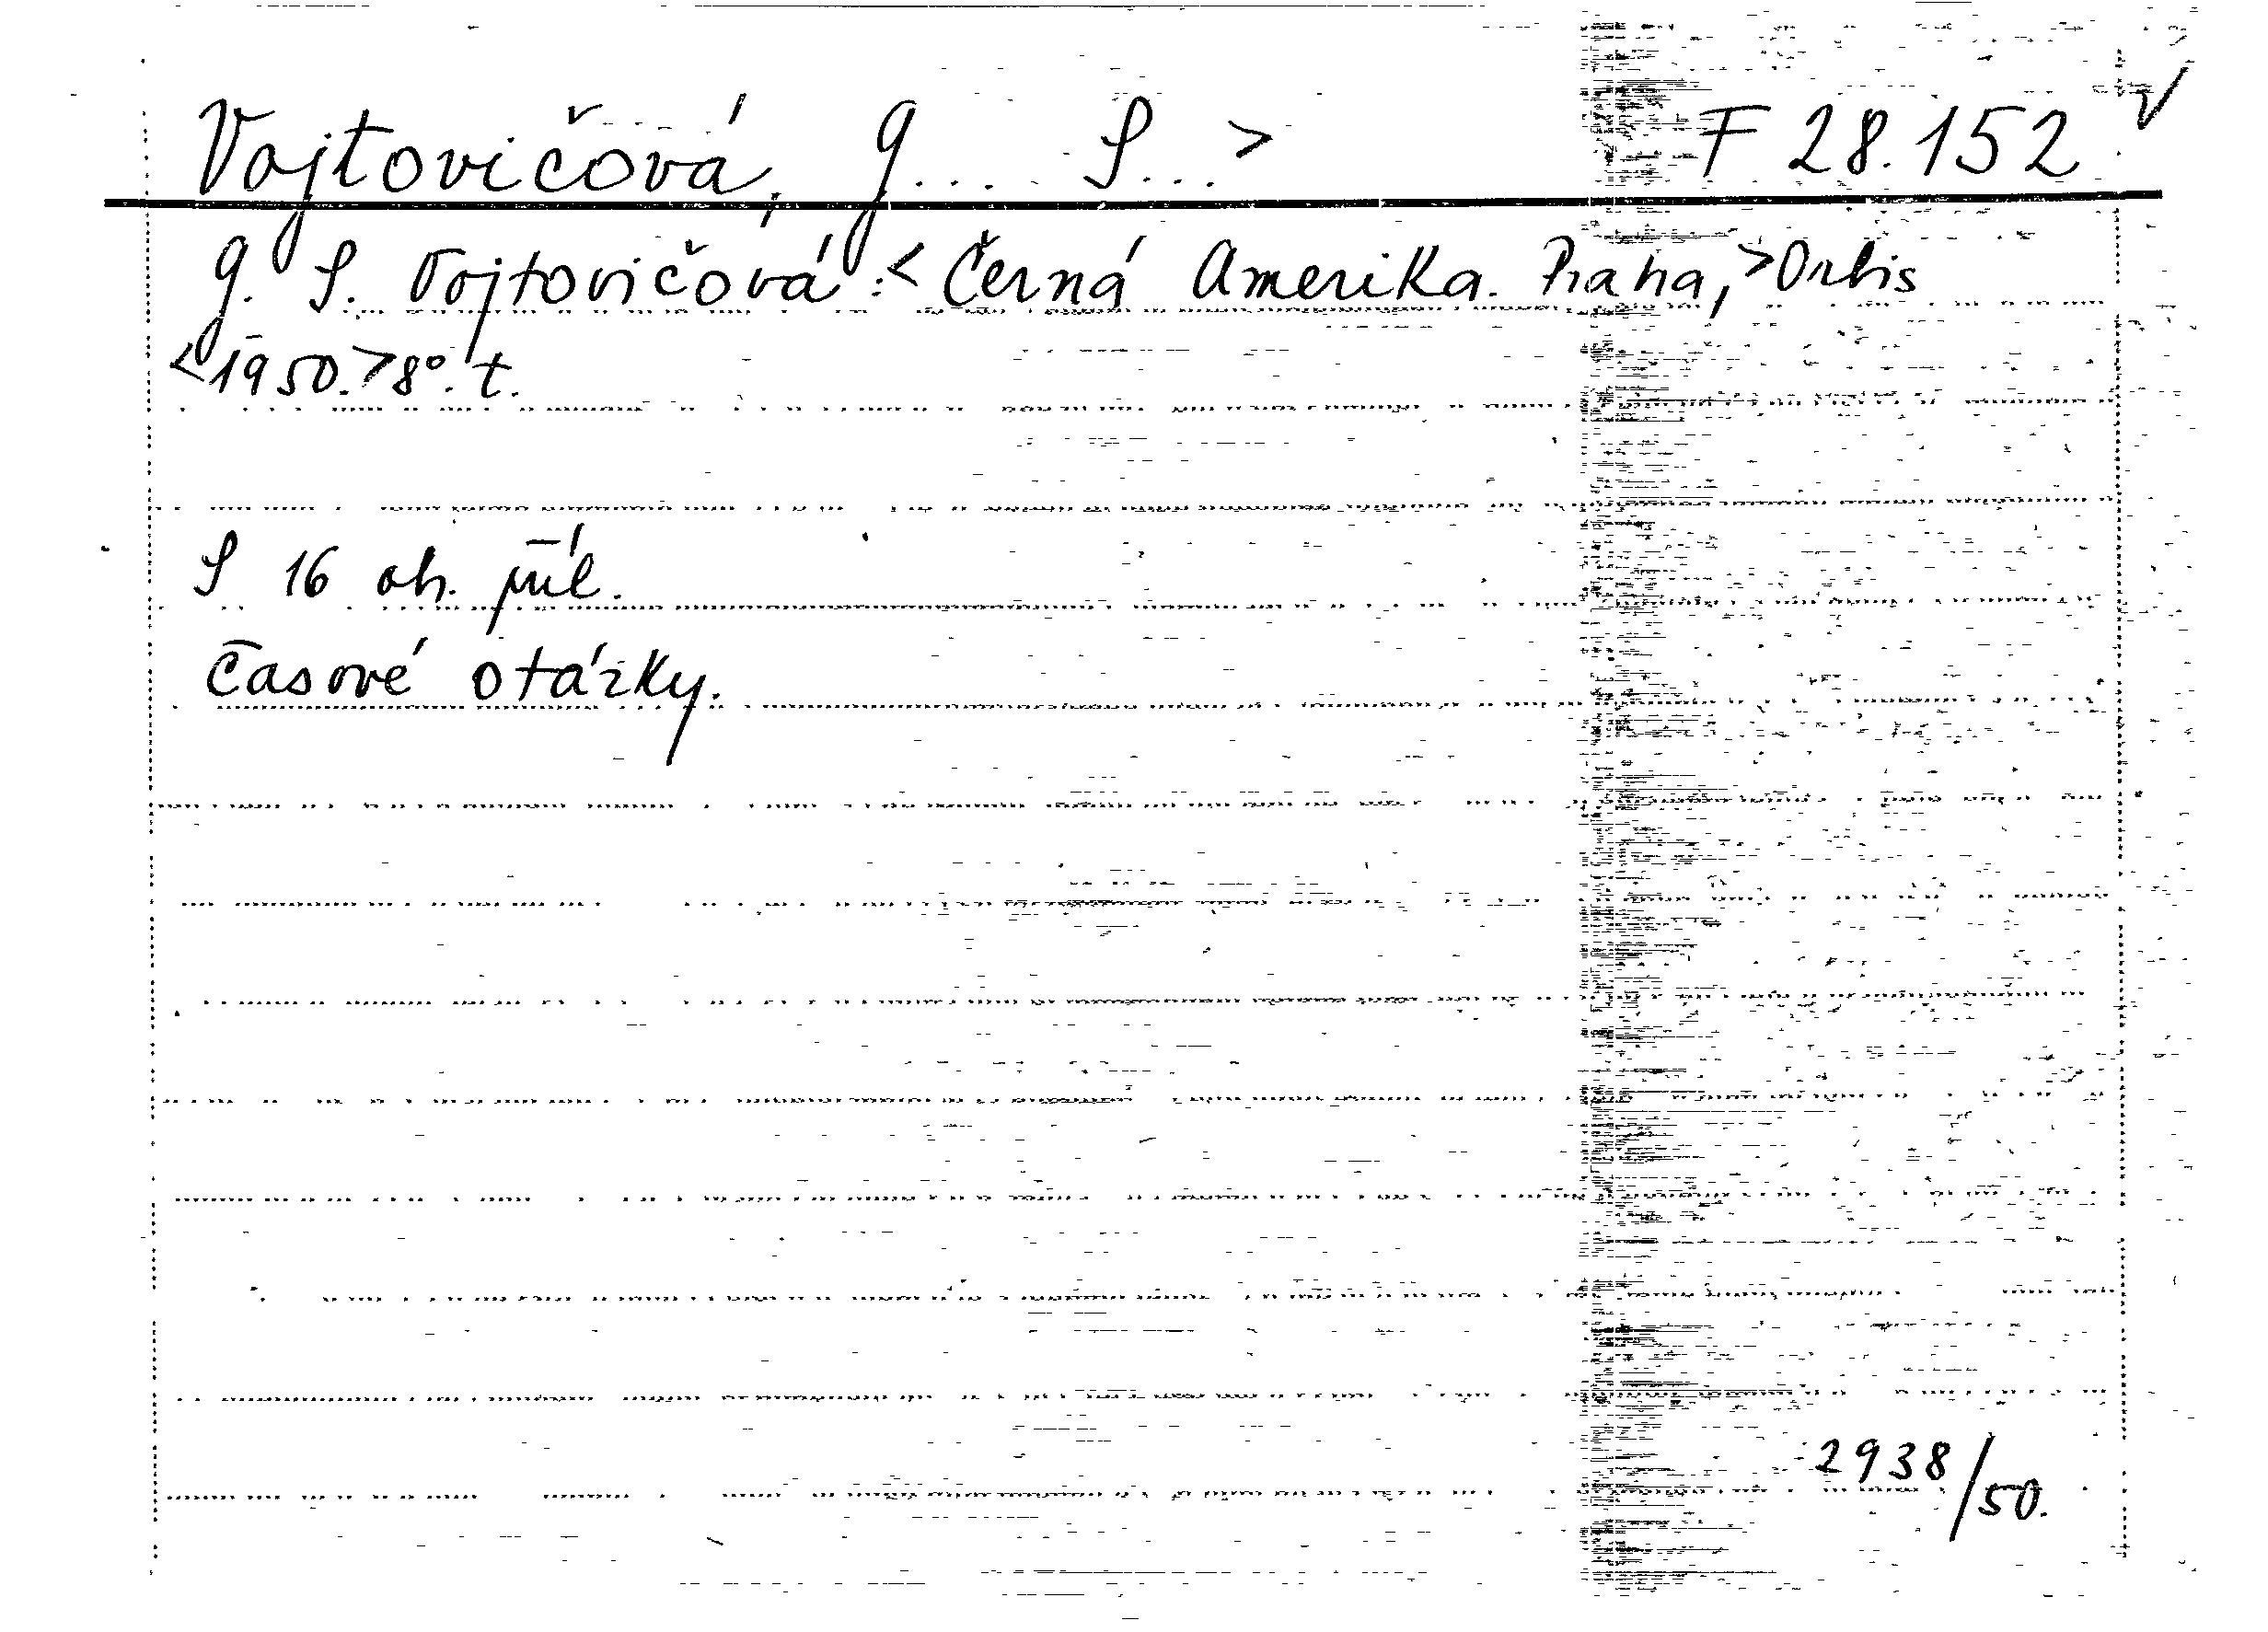 Vojtovičová, G... S... > F 28.152 √
G. S. Vojtovičová: < Černá Amerika. Praha, > Orbis
< 1950. > 8°. t.
S 16 ob. příl.
Časové otázky.
2938/50.